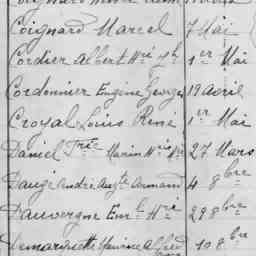 Coignard Marcel 7 Mai
Cordier Albert Hri Jh 1er Mai
Cordonnier Eugène Georges 19 avril
Croyal Louis René 1er Mai
Daniel Fric Marin Hri 27 Mars
Daugé André Augte Armand 4 8bre
Dauvergne Eml Hri 29 8bre
Demarquette Maurice Alfred 10 8bre